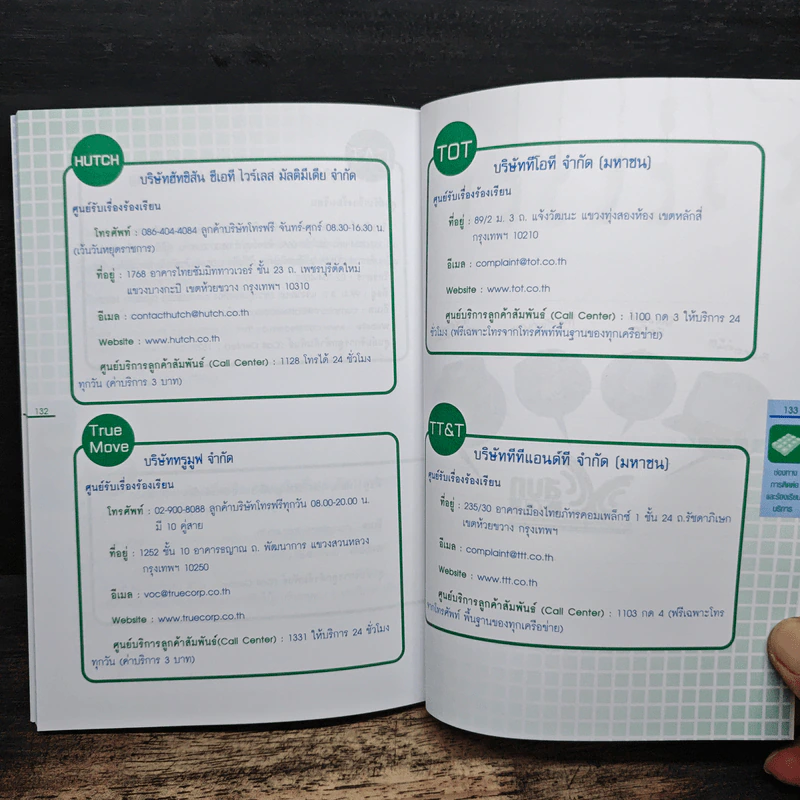 HUTCH
บริษัทฮัทชิสัน ซีเอที ไวร์เลส มัลติมีเดีย จำกัด
ศูนย์รับเรื่องร้องเรียน
โทรศัพท์ : 086-404-4084 ลูกค้าบริษัทโทรฟรี จันทร์-ศุกร์ 08.30-16.30 น.
(เว้นวันหยุดราชการ)
ที่อยู่ : 1768 อาคารไทยซัมมิททาวเวอร์ ชั้น 23 ถ. เพชรบุรีตัดใหม่
แขวงบางกะปิ เขตห้วยขวาง กรุงเทพฯ 10310
อีเมล : contacthutch@hutch.co.th
Website : www.hutch.co.th
ศูนย์บริการลูกค้าสัมพันธ์ (Call Center) : 1128 โทรได้ 24 ชั่วโมง
ทุกวัน (ค่าบริการ 3 บาท)
132
True
Move
บริษัททรูมูฟ จำกัด
ศูนย์รับเรื่องร้องเรียน
โทรศัพท์ : 02-900-8088 ลูกค้าบริษัทโทรฟรีทุกวัน 08.00-20.00 น.
มี 10 คู่สาย
ที่อยู่ : 1252 ชั้น 10 อาคารธญาณ ถ. พัฒนาการ แขวงสวนหลวง
กรุงเทพฯ 10250
อีเมล : voc@truecorp.co.th
Website : www.truecorp.co.th
ศูนย์บริการลูกค้าสัมพันธ์(Call Center) : 1331 ให้บริการ 24 ชั่วโมง
ทุกวัน (ค่าบริการ 3 บาท)
TOT
บริษัททีโอที จำกัด (มหาชน)
ศูนย์รับเรื่องร้องเรียน
ที่อยู่ : 89/2 ม. 3 ถ. แจ้งวัฒนะ แขวงทุ่งสองห้อง เขตหลักสี่
กรุงเทพฯ 10210
อีเมล : complaint@tot.co.th
Website : www.tot.co.th
ศูนย์บริการลูกค้าสัมพันธ์ (Call Center) : 1100 กด 3 ให้บริการ 24
ชั่วโมง (ฟรีเฉพาะโทรจากโทรศัพท์พื้นฐานของทุกเครือข่าย)
133
ช่องทาง
การติดต่อ
และร้องเรียน
บริการ
TT&T
บริษัททีทีแอนด์ที จำกัด (มหาชน)
ศูนย์รับเรื่องร้องเรียน
ที่อยู่ : 235/30 อาคารเมืองไทยภัทรคอมเพล็กซ์ 1 ชั้น 24 ถ.รัชดาภิเษก
เขตห้วยขวาง กรุงเทพฯ
อีเมล : complaint@ttt.co.th
Website : www.ttt.co.th
ศูนย์บริการลูกค้าสัมพันธ์ (Call Center) : 1103 กด 4 (ฟรีเฉพาะโทร
จากโทรศัพท์ พื้นฐานของทุกเครือข่าย)